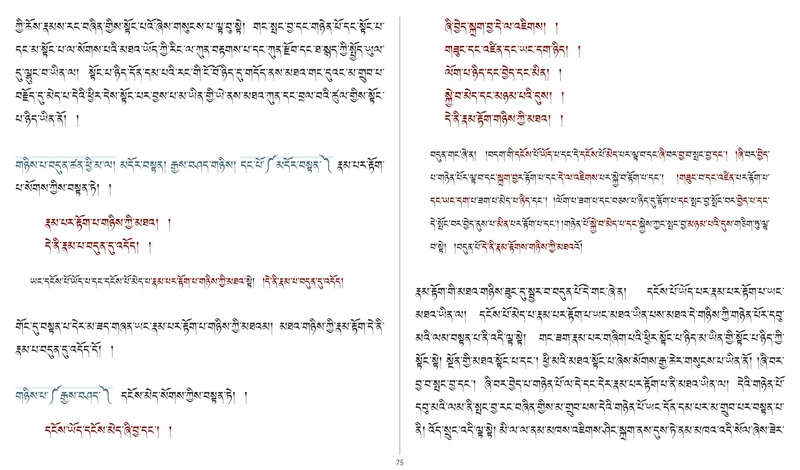 ཀྱི་ཆོས་རྣམས་རང་བཞིན་གྱིས་སྟོང་པའོ་ཞེས་གསུངས་པ་ལྟ་བུ་སྟེ། གང་སྤང་བྱ་དང་གཉེན་པོ་དང་སྟོང་པ་
དང་མ་སྟོང་པ་ལ་སོགས་པའི་མཐའ་ཡོད་ཀྱི་རིང་ལ་ཀུན་བརྟགས་པ་དང་ཀུན་རྫོབ་དང་ཐ་སྙད་ཀྱི་སྤྱོད་ཡུལ་
དུ་ལྷུང་བ་ཡིན་ལ། སྟོང་པ་ཉིད་དོན་དམ་པའི་རང་གི་ངོ་བོ་ཉིད་དུ་གདོད་ནས་མཐའ་གང་དུའང་མ་གྲུབ་པ་
བརྗོད་དུ་མེད་པ་དེའི་ཕྱིར་དེས་སྟོང་པར་བྱས་པ་མ་ཡིན་གྱི་ཡེ་ནས་མཐའ་ཀུན་དང་བྲལ་བའི་ཚུལ་གྱིས་སྟོང་
པ་ཉིད་ཡིན་ནོ། །
གཉིས་པ་བདུན་ཚན་ཕྱི་མ་ལ། མདོར་བསྟན། རྒྱས་བཤད་གཉིས། དང་པོ་༼མདོར་བསྟན་༽ རྣམ་པར་རྟོག་
པ་སོགས་ཀྱིས་བསྟན་ཏེ། །
རྣམ་པར་རྟོག་པ་གཉིས་ཀྱི་མཐའ། །
དེ་ནི་རྣམ་པ་བདུན་དུ་འདོད། །
ཡང་དངོས་པོ་ཡོད་པ་དང་དངོས་པོ་མེད་པ་རྣམ་པར་རྟོག་པ་གཉིས་ཀྱི་མཐའ་སྟེ། །དེ་ནི་རྣམ་པ་བདུན་དུ་འདོད།
གོང་དུ་བསྟན་པ་དེར་མ་ཟད་གཞན་ཡང་རྣམ་པར་རྟོག་པ་གཉིས་ཀྱི་མཐའམ། མཐའ་གཉིས་ཀྱི་རྣམ་རྟོག་དེ་ནི་
རྣམ་པ་བདུན་དུ་འདོད་དོ། །
གཉིས་པ་༼རྒྱས་བཤད་༽ དངོས་མེད་སོགས་ཀྱིས་བསྟན་ཏེ། །
དངོས་ཡོད་དངོས་མེད་ཞི་བྱ་དང་། །
ཞི་བྱེད་སྐྲག་བྱ་དེ་ལ་འཇིགས། །
གཟུང་དང་འཛིན་དང་ཡང་དག་ཉིད། །
ལོག་པ་ཉིད་དང་བྱེད་དང་མིན། །
སྐྱེ་བ་མེད་དང་མཉམ་པའི་དུས། །
དེ་ནི་རྣམ་རྟོག་གཉིས་ཀྱི་མཐའ། །
བདུན་གང་ཞེ་ན། །བདག་གི་དངོས་པོ་ཡོད་པ་དང་དེ་དངོས་པོ་མེད་པར་ལྟ་བ་དང་ཞི་བར་བྱ་བ་སྤང་བྱ་དང་། །ཞི་བར་བྱེད་
པ་གཉེན་པོར་ལྟ་བ་དང་སྐྲག་བྱར་རྟོག་པ་དང་དེ་ལ་འཇིགས་པར་སྐྱེ་བ་རྟོག་པ་དང་། །གཟུང་བ་དང་འཛིན་པར་རྟོག་པ་
དང་ཡང་དག་པ་ཟག་པ་མེད་པ་ཉིད་དང་། །ལོག་པ་ཟག་པ་དང་བཅས་པ་ཉིད་དུ་རྟོག་པ་དང་སྤང་བྱ་སྤོང་བར་བྱེད་པ་དང་
དེ་སྤོང་བར་བྱེད་ནུས་པ་མིན་པར་རྟོག་པ་དང་། །གཉེན་པོ་སྐྱེ་བ་མེད་པ་དང་སྐྱེས་ཀྱང་སྤང་བྱ་མཉམ་པའི་དུས་གཅིག་ཏུ་ལྟ་
བ་སྟེ། །བདུན་པོ་དེ་ནི་རྣམ་རྟོགས་གཉིས་ཀྱི་མཐའའོ།
རྣམ་རྟོག་གི་མཐའ་གཉིས་ཟུང་དུ་སྦྱར་བ་བདུན་པོ་དེ་གང་ཞེ་ན། དངོས་པོ་ཡོད་པར་རྣམ་པར་རྟོག་པ་ཡང་
མཐའ་ཡིན་ལ། དངོས་པོ་མེད་པ་རྣམ་པར་རྟོག་པ་ཡང་མཐའ་ཡིན་པས་མཐའ་དེ་གཉིས་ཀྱི་གཉེན་པོར་དབུ་
མའི་ལམ་བསྟན་པ་ནི་འདི་ལྟ་སྟེ། གང་ཟག་རྣམ་པར་གཞིག་པའི་ཕྱིར་སྟོང་པ་ཉིད་མ་ཡིན་གྱི་སྟོང་པ་ཉིད་ཀྱི་
སྟོང་སྟེ། སྔོན་གྱི་མཐའ་སྟོང་པ་དང་། ཕྱི་མའི་མཐའ་སྟོང་པ་ཞེས་སོགས་རྒྱ་ཆེར་གསུངས་པ་ཡིན་ནོ། །ཞི་བར་
བྱ་བ་སྤང་བྱ་དང་། ཞི་བར་བྱེད་པ་གཉེན་པོ་ལ་དེ་དང་དེར་རྣམ་པར་རྟོག་པ་ནི་མཐའ་ཡིན་ལ། དེའི་གཉེན་པོ་
དབུ་མའི་ལམ་ནི་སྤང་བྱ་རང་བཞིན་གྱིས་མ་གྲུབ་པས་དེའི་གཉེན་པོ་ཡང་དོན་དམ་པར་མ་གྲུབ་པར་བསྟན་པ་
ནི། འོད་སྲུང་འདི་ལྟ་སྟེ། མི་ལ་ལ་ནམ་མཁས་འཇིགས་ཤིང་སྐྲག་ནས་དུས་ཏེ་ནམ་མཁའ་འདི་སོལ་ཞེས་ཟེར་
75